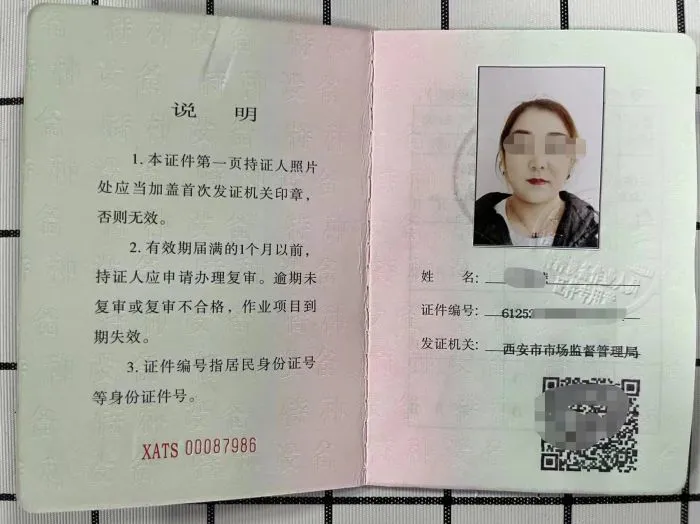 说 明
1. 本证件第一页持证人照片
处应当加盖首次发证机关印章，
否则无效。
2. 有效期届满的1个月以前，
持证人应申请办理复审。逾期未
复审或复审不合格，作业项目到
期失效。
3. 证件编号指居民身份证号
等身份证件号。
XATS 00087986
姓 名：
证件编号： 6125
发证机关： 西安市市场监督管理局